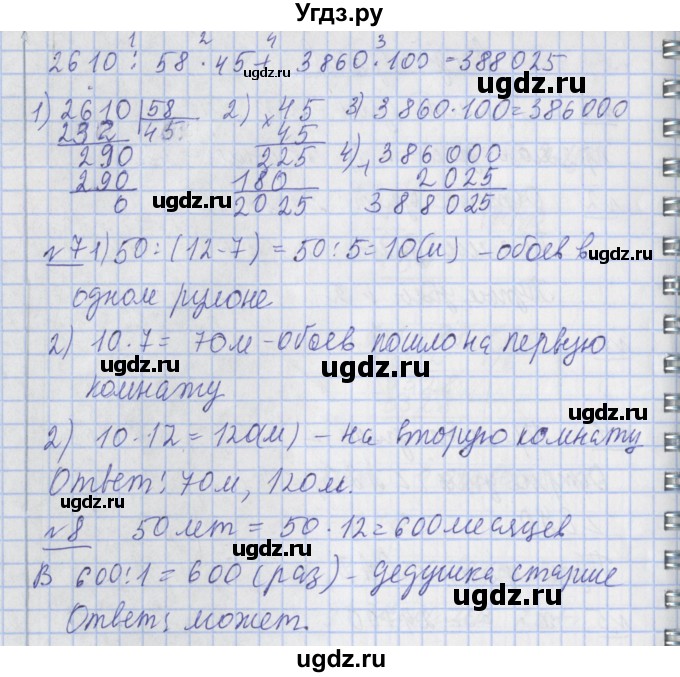 Угдз.ру
1 2 4 3
2610 : 58 · 45 + 3860 · 100 = 388025
1) 2610 58 2) 45 3) 3860·100=386000
232 45 × 45
290 225 4) 386000
290 180 + 2025
0 2025 388025
ugdz.ru ugdz.ru ugdz.ru
№7 1) 50 : (12-7) = 50 : 5 = 10(м) - обоев в
ugdz.ru
одном рулоне
2) 10·7 = 70м - обоев пошло на первую
ugdz.ru
комнату
2) 10·12 = 120(м) - на вторую комнату
ugdz.ru
Ответ: 70м, 120м.
ugdz.ru
№8 50 лет = 50·12 = 600 месяцев
ugdz.ru
В 600:1 = 600 (раз) - дедушка старше
ugdz.ru
Ответ: может.
ugdz.ru